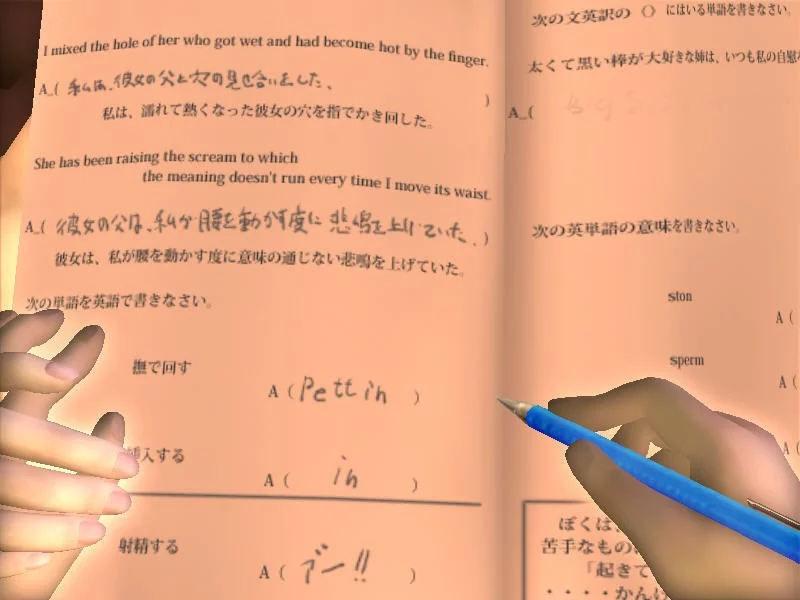 I mixed the hole of her who got wet and had become hot by the finger.
A_( 私は、彼女の父と穴の見せ合いをした、 )
私は、濡れて熱くなった彼女の穴を指でかき回した。
She has been raising the scream to which
the meaning doesn't run every time I move its waist.
A_( 彼女の父は、私が腰を動かす度に悲鳴を上げていた、 )
彼女は、私が腰を動かす度に意味の通じない悲鳴を上げていた。
次の単語を英語で書きなさい。
撫で回す
A ( Pettin )
挿入する
A ( in )
射精する
A ( ブー!! )
次の文英訳の () にはいる単語を書きなさい。
太くて黒い棒が大好きな姉は、いつも私の自慰
A_(
次の英単語の意味を書きなさい。
ston
A (
sperm
A (
A (
ぼくは
苦手なもの
「起きて
・・・・かん